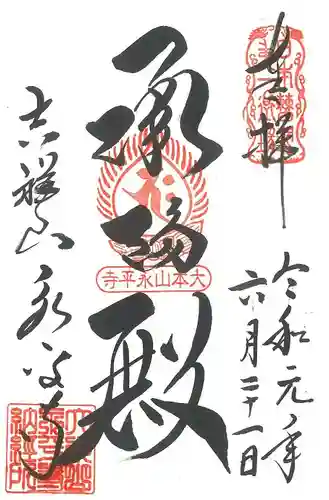 奉拝
令和元年
六月二十一日
承陽殿
大本山永平寺
吉祥山
永平寺